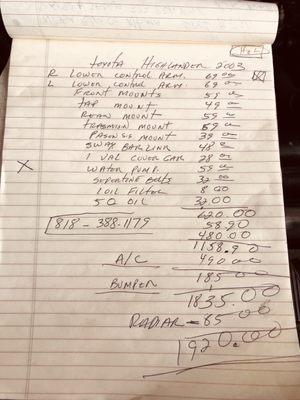 H&L
TOYOTA HIGHLANDER 2003
R LOWER CONTROL ARM. 69 00
L LOWER CONTROL ARM. 69 00
FRONT MOUNTS 59 00
TAP MOUNT 49 00
REAR MOUNT 59 00
TRASMION MOUNT 59 00
MOUNT 39 00
SWAY BAR LINK 48 00
1 VAL COVER GAS 28 00
X WATER PUMP. 59 00
SERPENTINE BELTS 32 00
1 OIL FILTER 8 00
5 Q OIL 32.00
620.00
818-388-1179 58.90
480.00
1158.90
A/C 490 00
BUMPER 185 00
1835.00
RADIAR - 85 00
1920.00